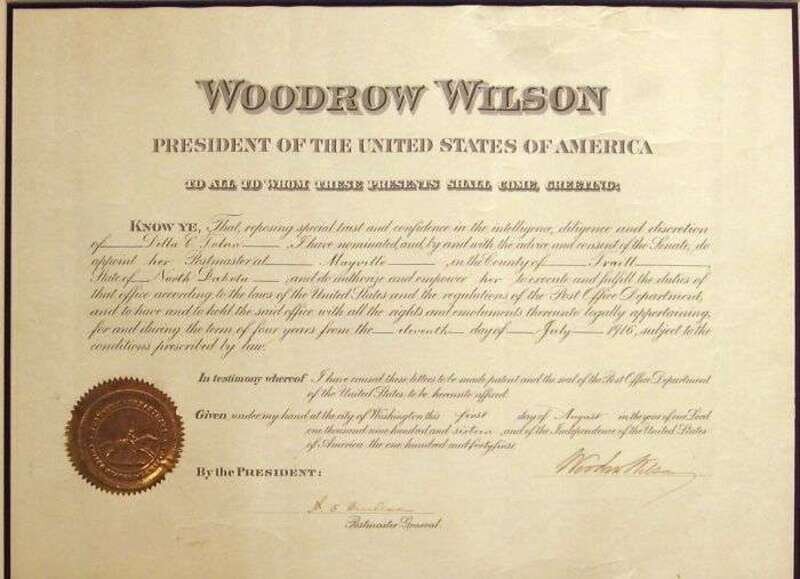 WOODROW WILSON
PRESIDENT OF THE UNITED STATES OF AMERICA
TO ALL TO WHOM THESE PRESENTS SHALL COME, GREETING:
KNOW YE, That, reposing special trust and confidence in the intelligence, diligence and discretion
of Della C. , I have nominated, and, by and with the advice and consent of the Senate, do
appoint her Postmaster at Mayville , in the County of Traill
State of North Dakota , and do authorize and empower her to execute and fulfill the duties of
that office according to the laws of the United States and the regulations of the Post Office Department,
and to have and to hold the said office with all the rights and emoluments thereunto legally appertaining,
for and during the term of four years from the eleventh day of July 1916, subject to the
conditions prescribed by law.
In testimony whereof I have caused these letters to be made patent and the seal of the Post Office Department
of the United States to be hereunto affixed.
Given under my hand at the city of Washington this first day of August in the year of our Lord
one thousand nine hundred and sixteen , and of the Independence of the United States
of America the one hundred and forty first.
By the PRESIDENT:
Woodrow Wilson
Postmaster General.